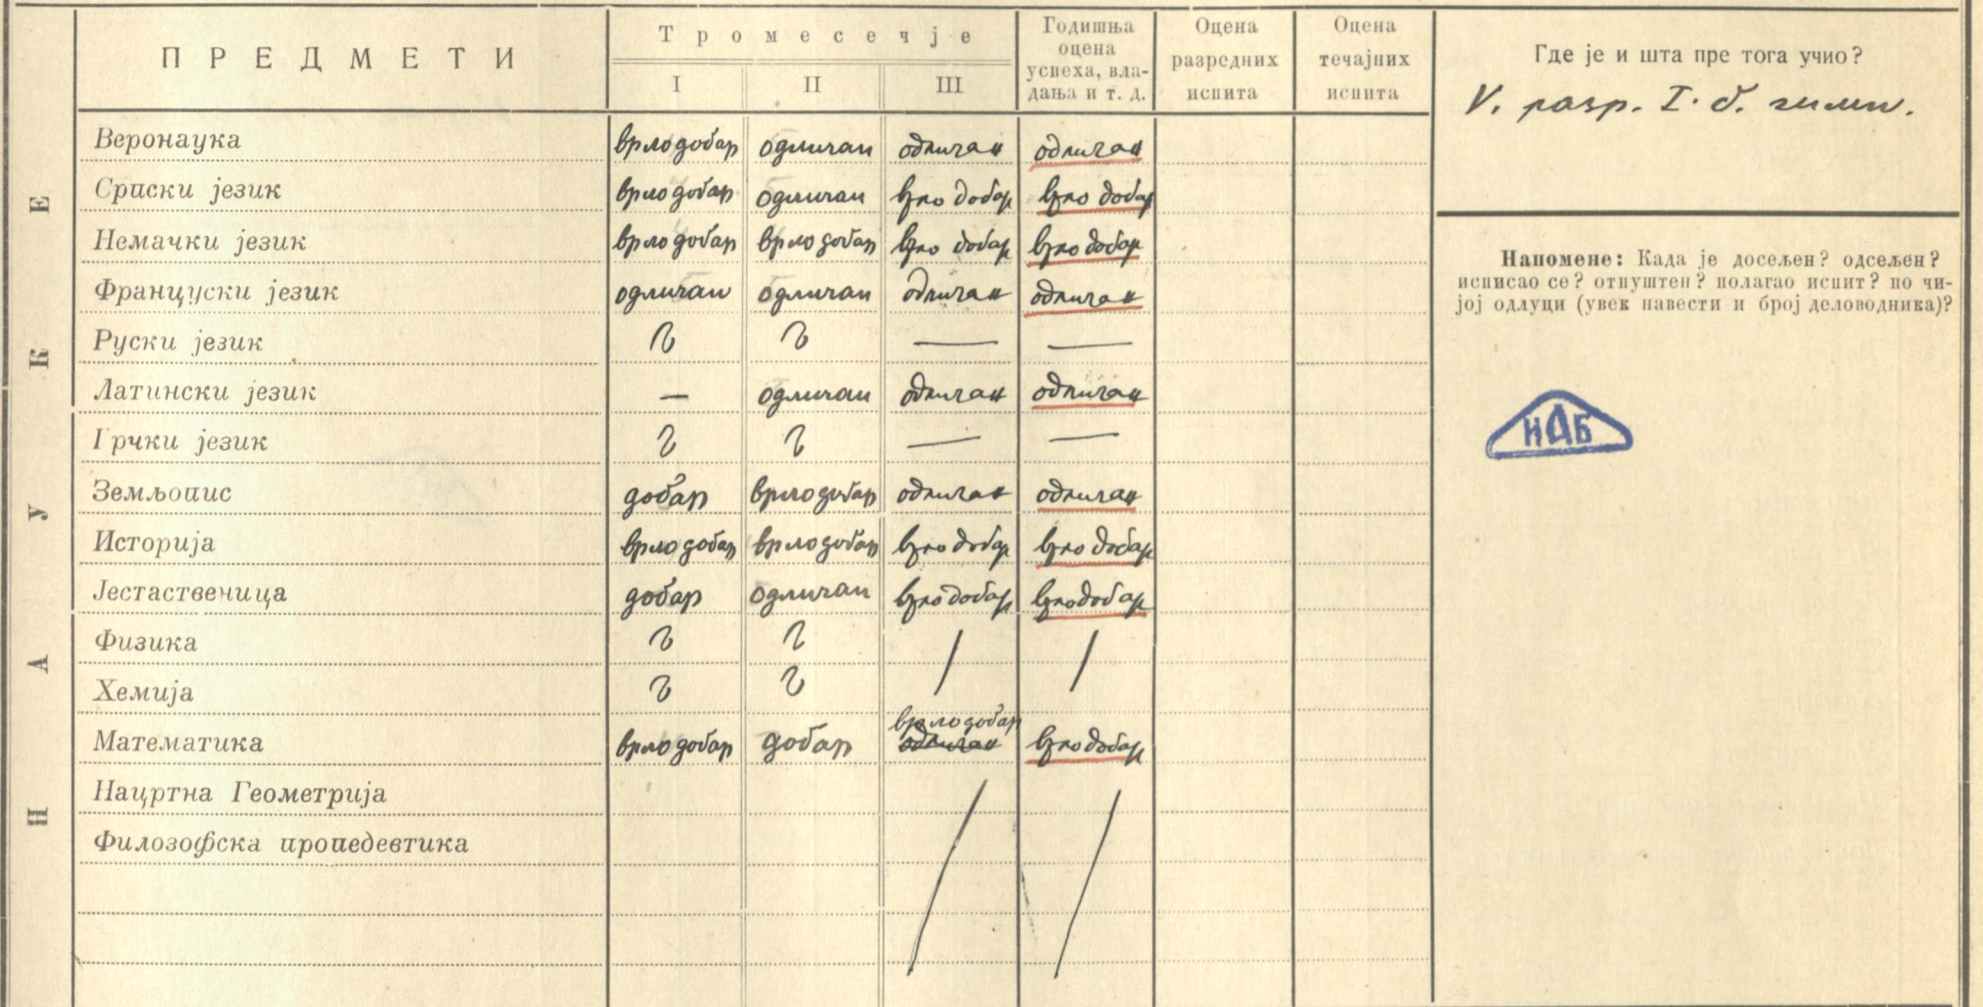 ПРЕДМЕТИ
Тромесечје
I II III
Годишња оцена успеха, вла-дања и т. д.
Оцена разредних испита
Оцена течајних испита
Где је и шта пре тога учио?
V. разр. I. б. гимн.
НАУКЕ
Веронаука врло добар одличан одличан одличан
Српски језик врло добар одличан врло добар врло добар
Немачки језик врло добар врло добар врло добар врло добар
Француски језик одличан одличан одличан одличан
Руски језик — —
Латински језик — одличан одличан одличан
Грчки језик — —
Земљопис добар врло добар одличан одличан
Историја врло добар врло добар врло добар врло добар
Јестаственица добар одличан врло добар врло добар
Физика / /
Хемија
врло добар
Математика врло добар добар одличан врло добар
Нацртна Геометрија / /
Филозофска пропедевтика
Напомене: Када је досељен? одсељен?
исписао се? отпуштен? полагао испит? по чи-
јој одлуци (увек навести и број деловодника)?
НАБ